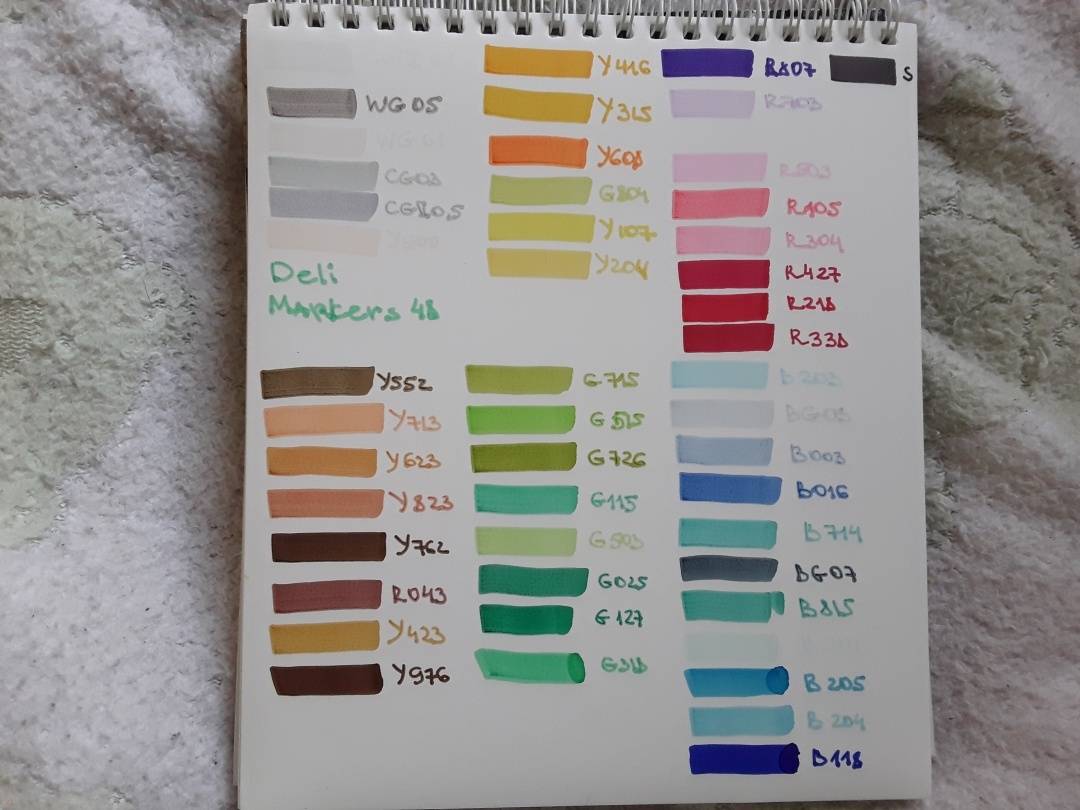 WG05
CG08
Deli
Markers 48
Y416
Y315
Y608
G804
Y107
Y204
R807
R703
R503
R105
R304
R427
R218
R338
S
Y552
Y713
Y623
Y823
Y762
R043
Y423
Y976
G715
G515
G726
G115
G503
G025
G127
G318
B203
BG03
B003
B016
B714
BG07
B815
B205
B204
B118